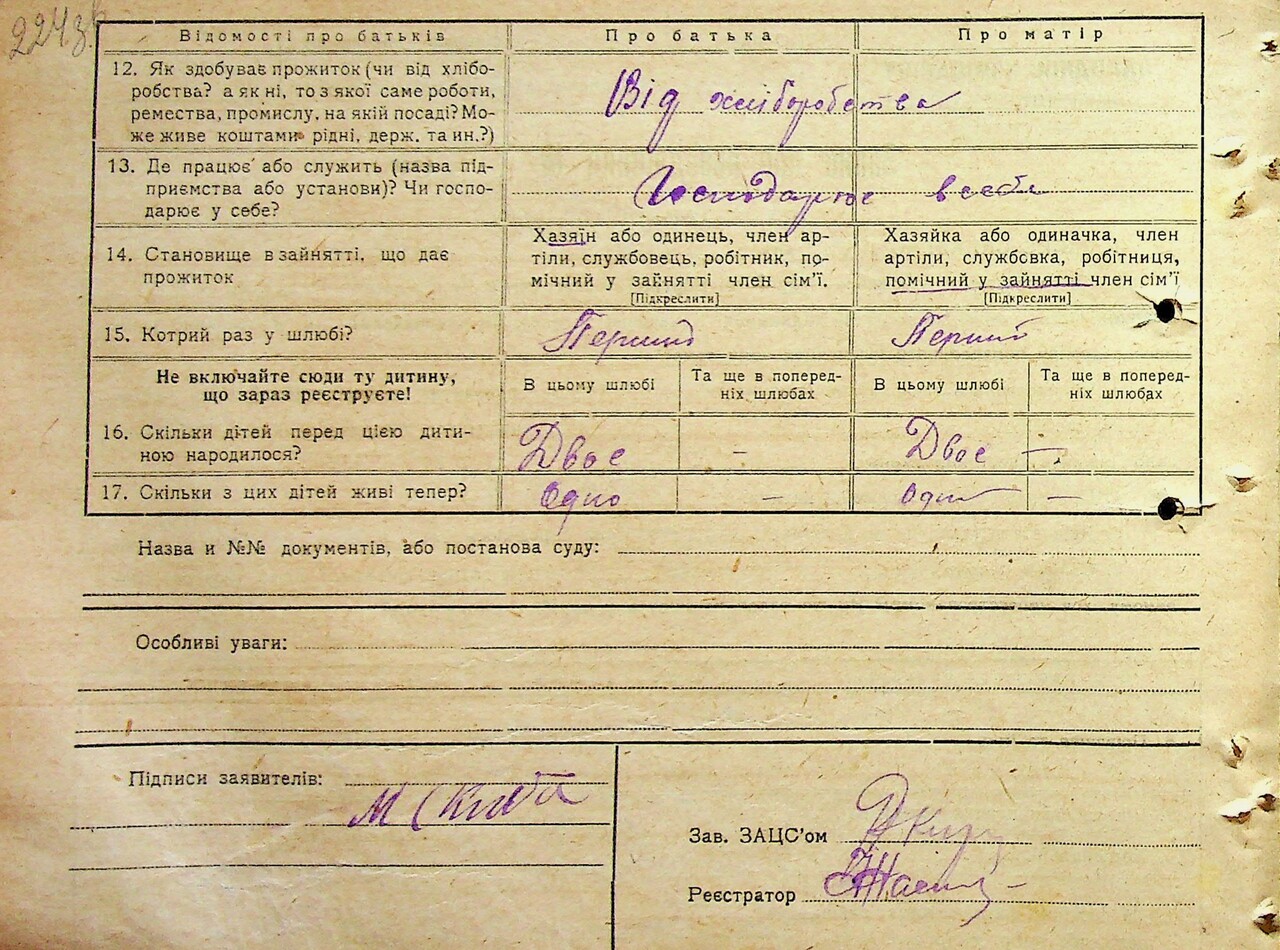 224зв
Відомості про батьків
Про батька
Про матір
12. Як здобуває прожиток (чи від хлібо-
робства? а як ні, то з якої саме роботи,
ремества, промислу, на якій посаді? Мо-
же живе коштами рідні, держ. та ин.?)
Від хліборобства
13. Де працює або служить (назва під-
приємства або установи)? Чи госпо-
дарює у себе?
Господарює в себе
14. Становище в зайнятті, що дає
прожиток
Хазяїн або одинець, член ар-
тіли, службовець, робітник, по-
мічний у зайнятті член сім’ї.
[Підкреслити]
Хазяйка або одиначка, член
артіли, службовка, робітниця,
помічний у зайнятті член сім’ї
[Підкреслити]
15. Котрий раз у шлюбі?
Перший
Перший
Не включайте сюди ту дитину,
що зараз реєструєте!
В цьому шлюбі
Та ще в поперед-
ніх шлюбах
В цьому шлюбі
Та ще в поперед-
ніх шлюбах
16. Скільки дітей перед цією дити-
ною народилося?
Двоє
—
Двоє
—
17. Скільки з цих дітей живі тепер?
Одно
—
Одно
—
Назва и №№ документів, або постанова суду:
Особливі уваги:
Підписи заявителів:
М Скиба
Зав. ЗАЦС’ом
Реєстратор